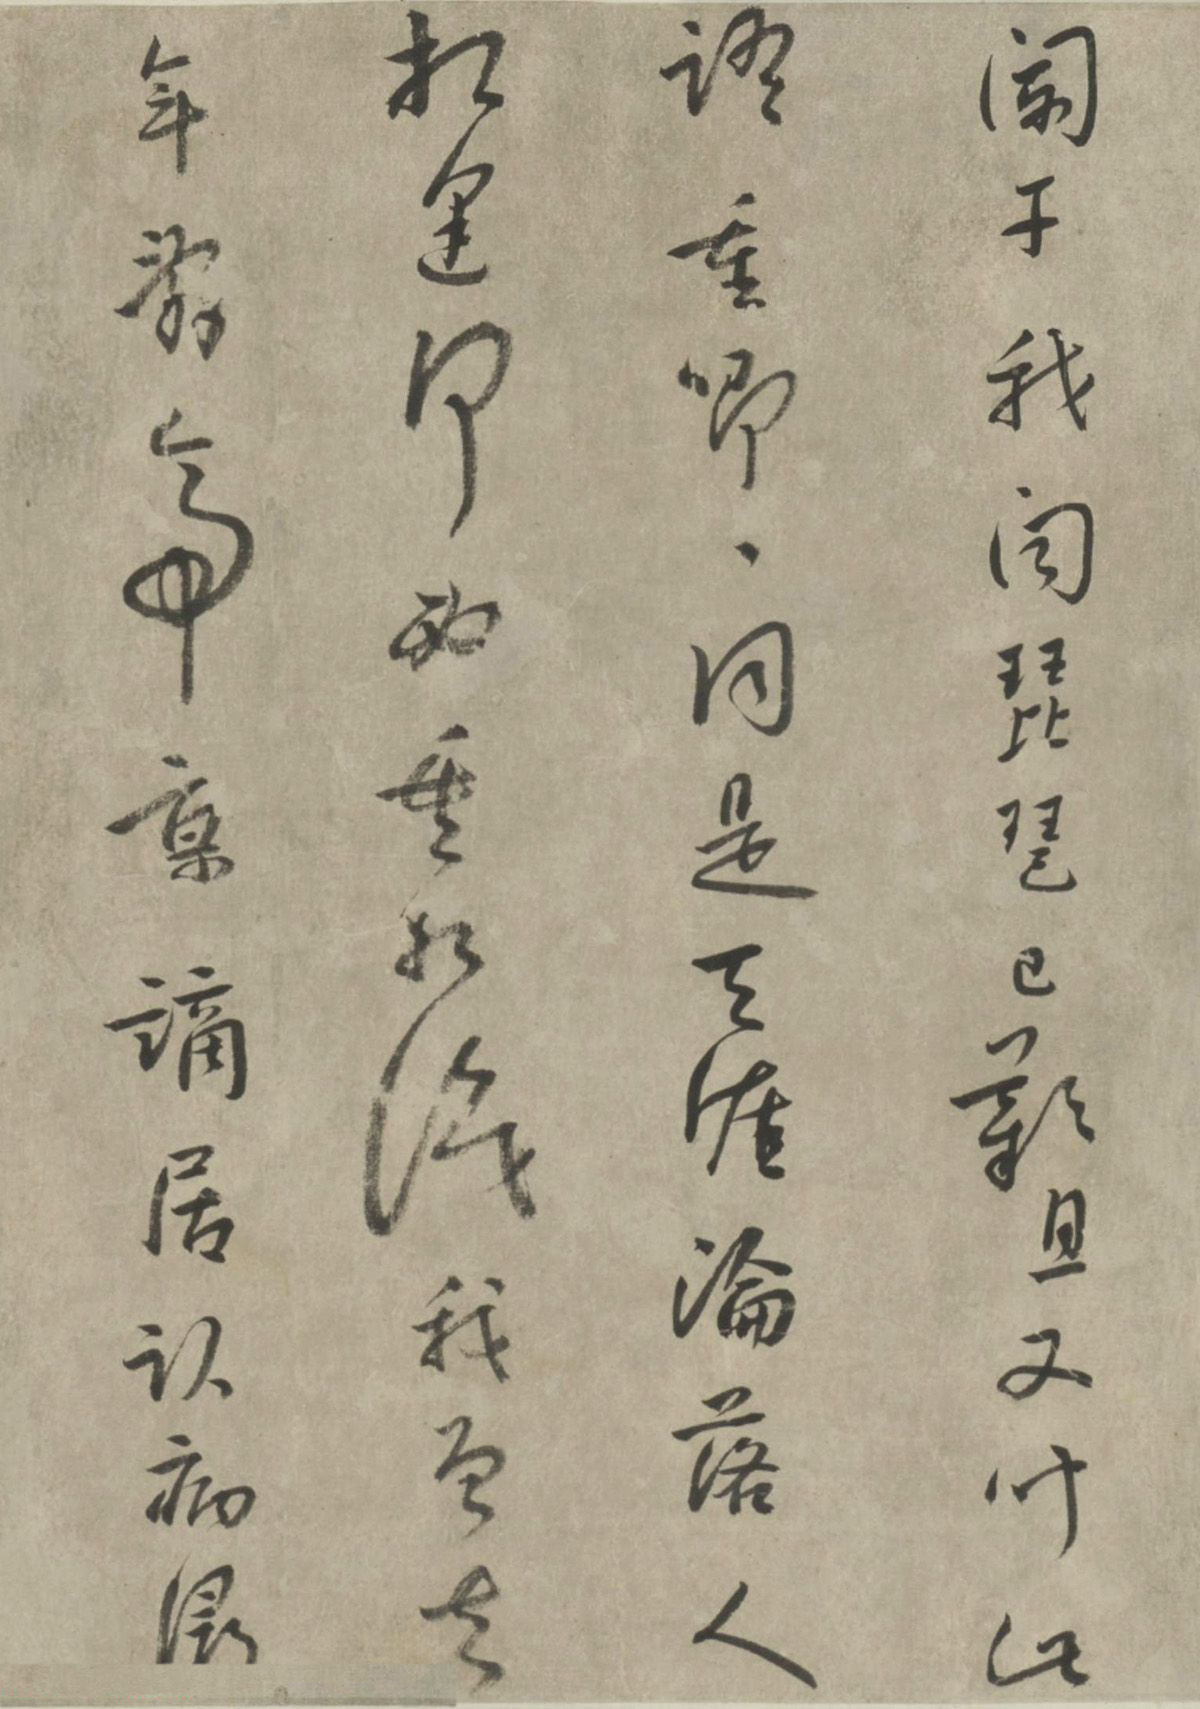 闌干我聞琵琶已歎息又聞此
語重唧、同是天涯淪落人
相逢何必曾相識我從去
年辭帝京謫居臥病潯